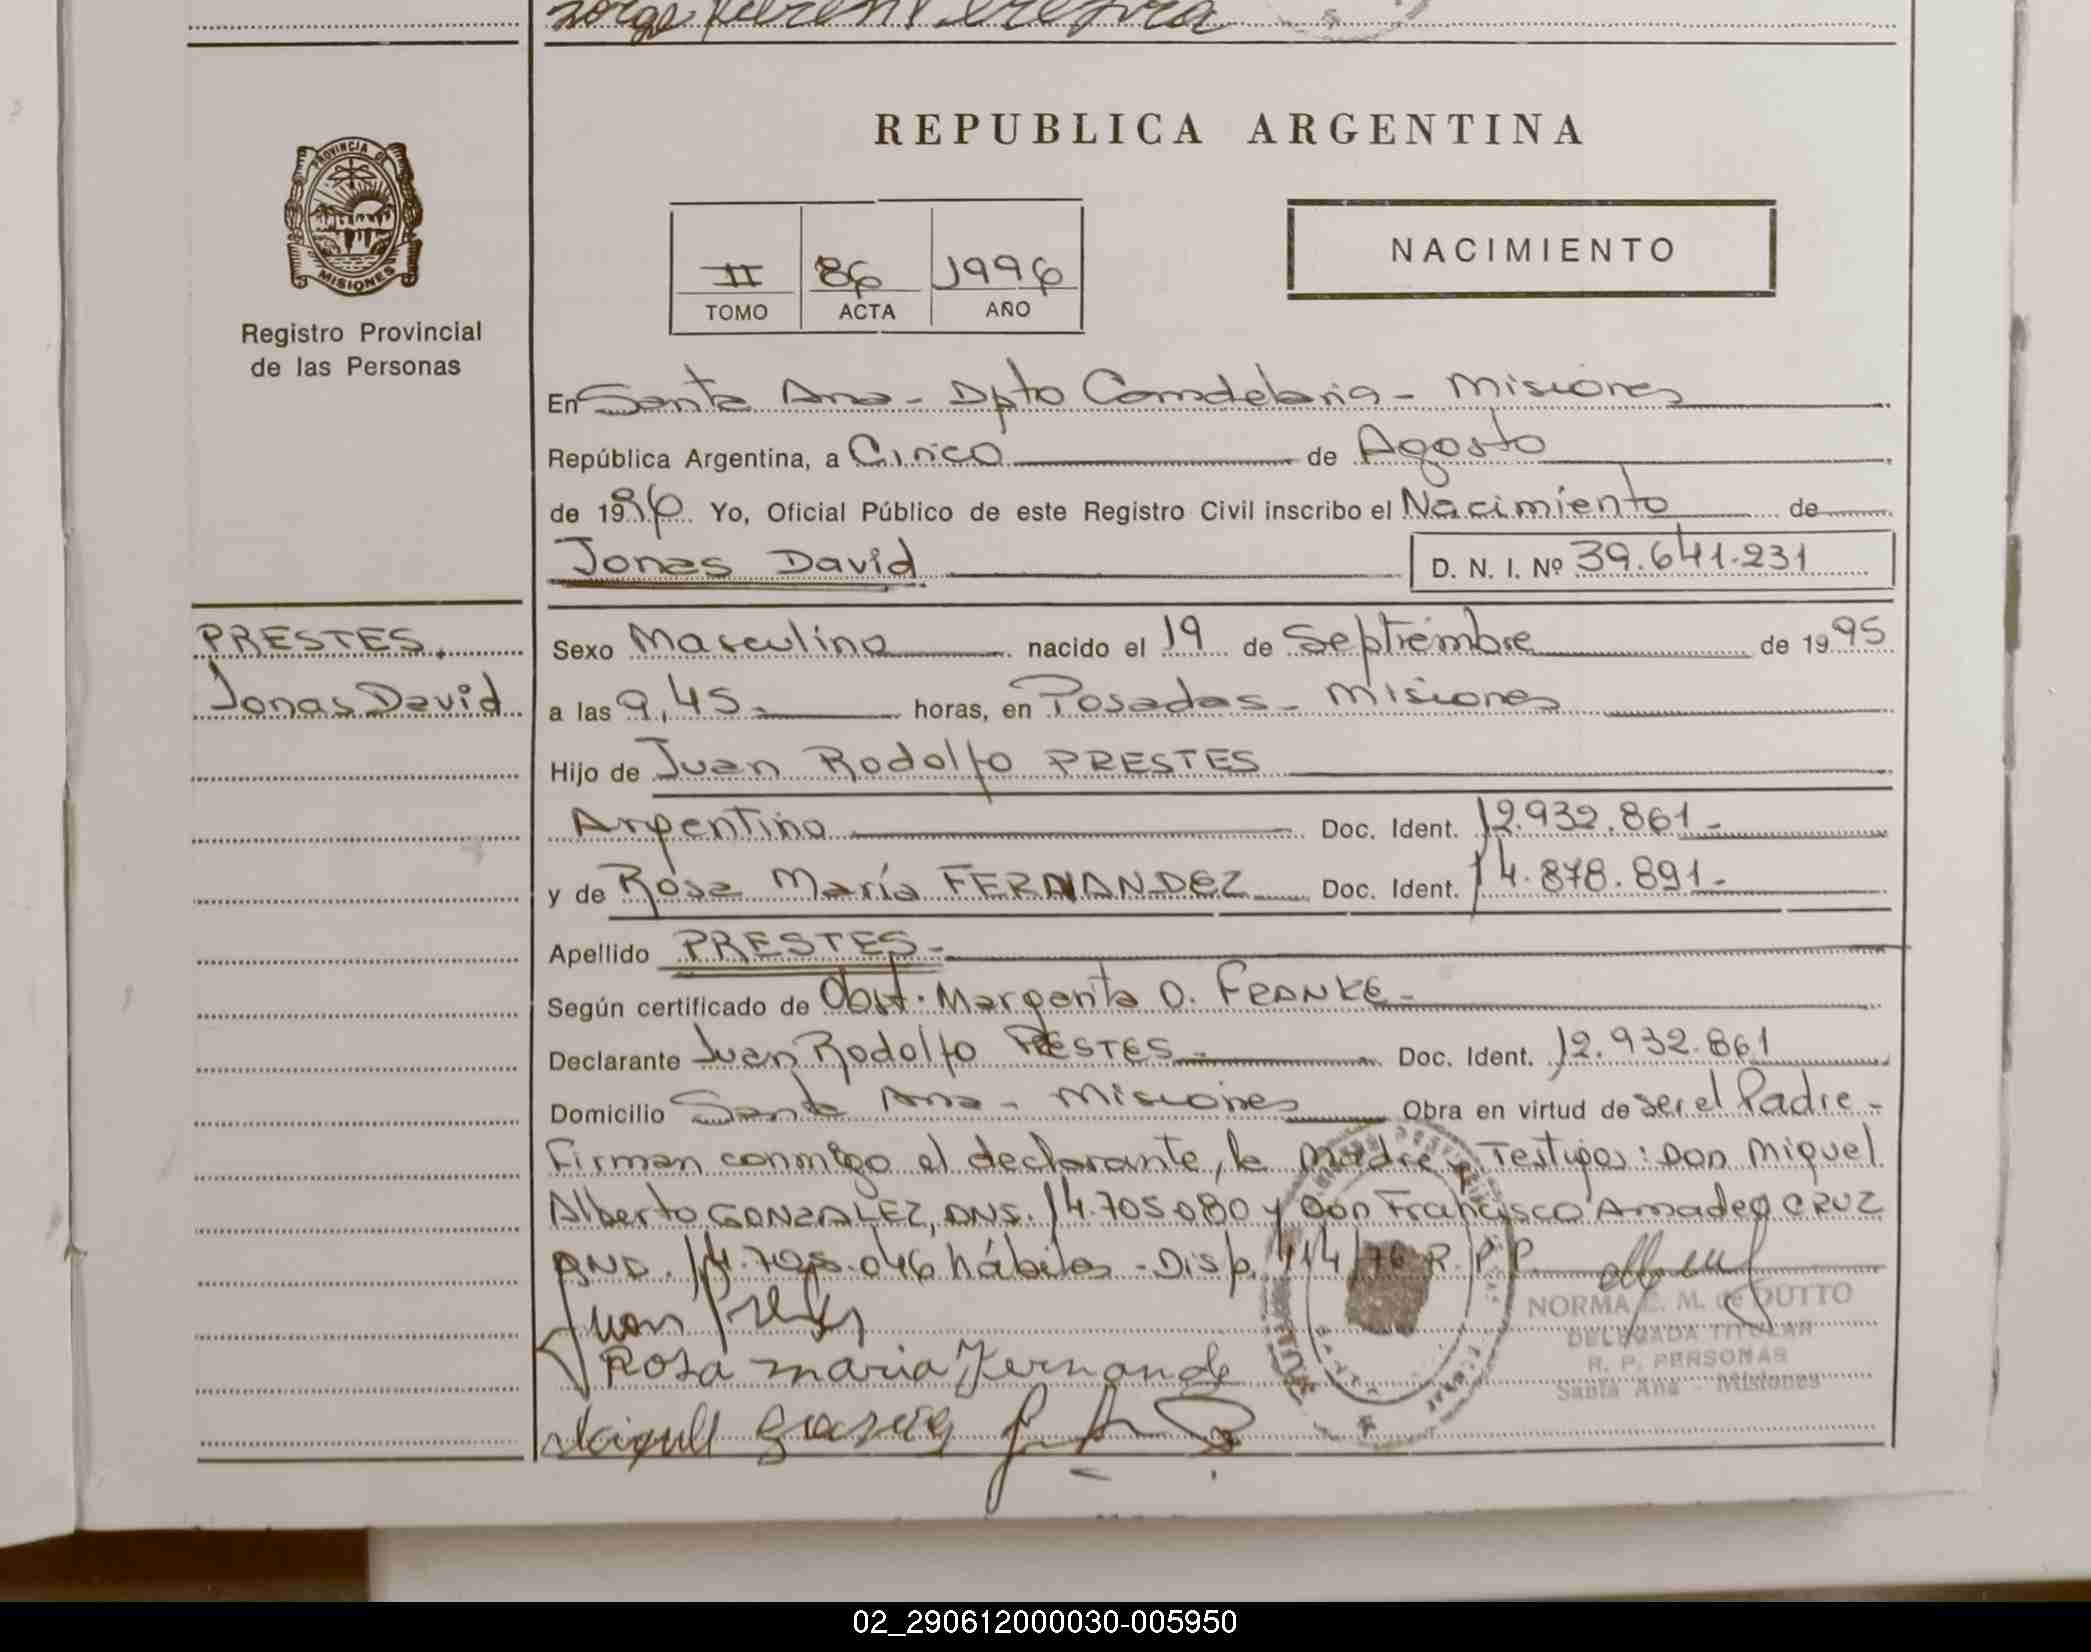 PROVINCIA DE
MISIONES
Registro Provincial
de las Personas
REPUBLICA ARGENTINA
II 86 1996
TOMO ACTA AÑO
NACIMIENTO
En Santa Ana - Dpto Candelaria - Misiones
República Argentina, a Cinco de Agosto
de 1996 Yo, Oficial Público de este Registro Civil inscribo el Nacimiento de
Jonas David D. N. I. Nº 39.641.231
PRESTES.
Jonas David
Sexo Masculino nacido el 19 de Septiembre de 1995
a las 9,45 horas, en Posadas - Misiones
Hijo de Juan Rodolfo PRESTES
Argentino Doc. Ident. 12.932.861-
y de Rosa María FERNANDEZ Doc. Ident. 14.878.891-
Apellido PRESTES-
Según certificado de Obst. Margarita O. FRANKE-
Declarante Juan Rodolfo PRESTES- Doc. Ident. 12.932.861
Domicilio Santa Ana - Misiones Obra en virtud de ser el Padre-
Firman conmigo el declarante, la Madre y Testigos: Don Miguel
Alberto GONZALEZ, DNI. 14.705.080 y Don Francisco Amadeo CRUZ
DNI. 14.705.046 hábiles - Disp. 414/76 R. P. P.
Juan Prestes
Rosa maria Fernande
NORMA E. M. de DUTTO
DELEGADA TITULAR
R. P. PERSONAS
Santa Ana - Misiones
02_290612000030-005950